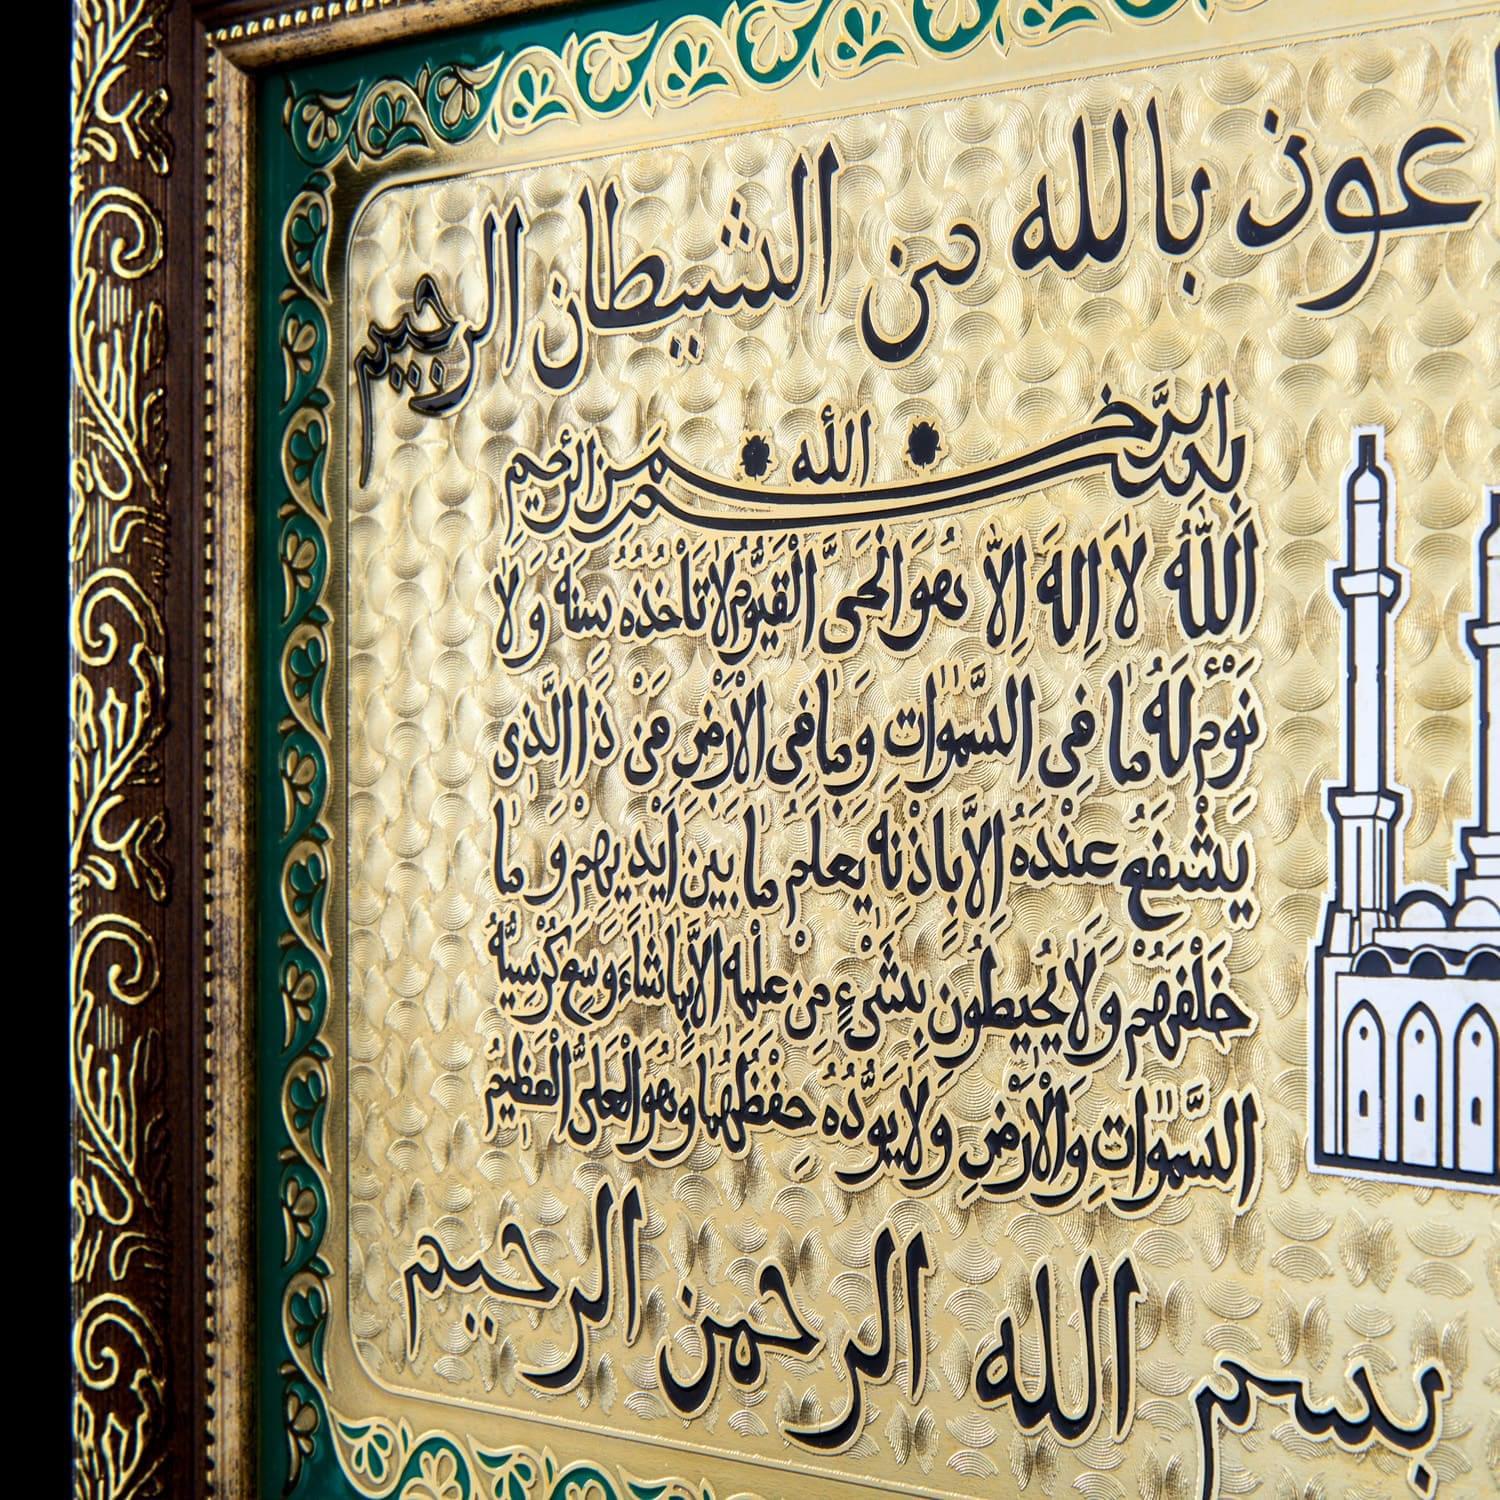 عوذ بالله من الشيطان الرجيم
بسم الله الرحمن الرحيم
اَللّٰهُ لَا اِلٰهَ اِلَّا هُوَ اَلْحَىُّ الْقَيُّومُ لَا تَأْخُذُهُ سِنَةٌ وَلَا
نَوْمٌ لَهُ مَا فِى السَّمٰوَاتِ وَمَا فِى الْاَرْضِ مَنْ ذَا الَّذِى
يَشْفَعُ عِنْدَهُ اِلَّا بِاِذْنِهِ يَعْلَمُ مَا بَيْنَ اَيْدِيهِمْ وَمَا
خَلْفَهُمْ وَلَا يُحِيطُونَ بِشَىْءٍ مِنْ عِلْمِهِ اِلَّا بِمَا شَاءَ وَسِعَ كُرْسِيُّهُ
السَّمٰوَاتِ وَالْاَرْضَ وَلَا يَؤُدُهُ حِفْظُهُمَا وَهُوَ الْعَلِىُّ الْعَظِيمُ
بسم الله الرحمن الرحيم